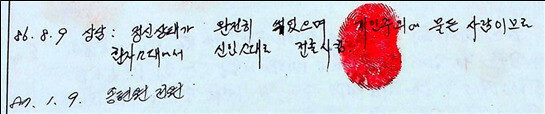 86. 8. 9 상상: 정신상태가 완전히 되었으며 개인주의에 물든 사람이므로
환자소대에서 신입소대로 전출시킴.
87. 1. 9. 송현원 전원